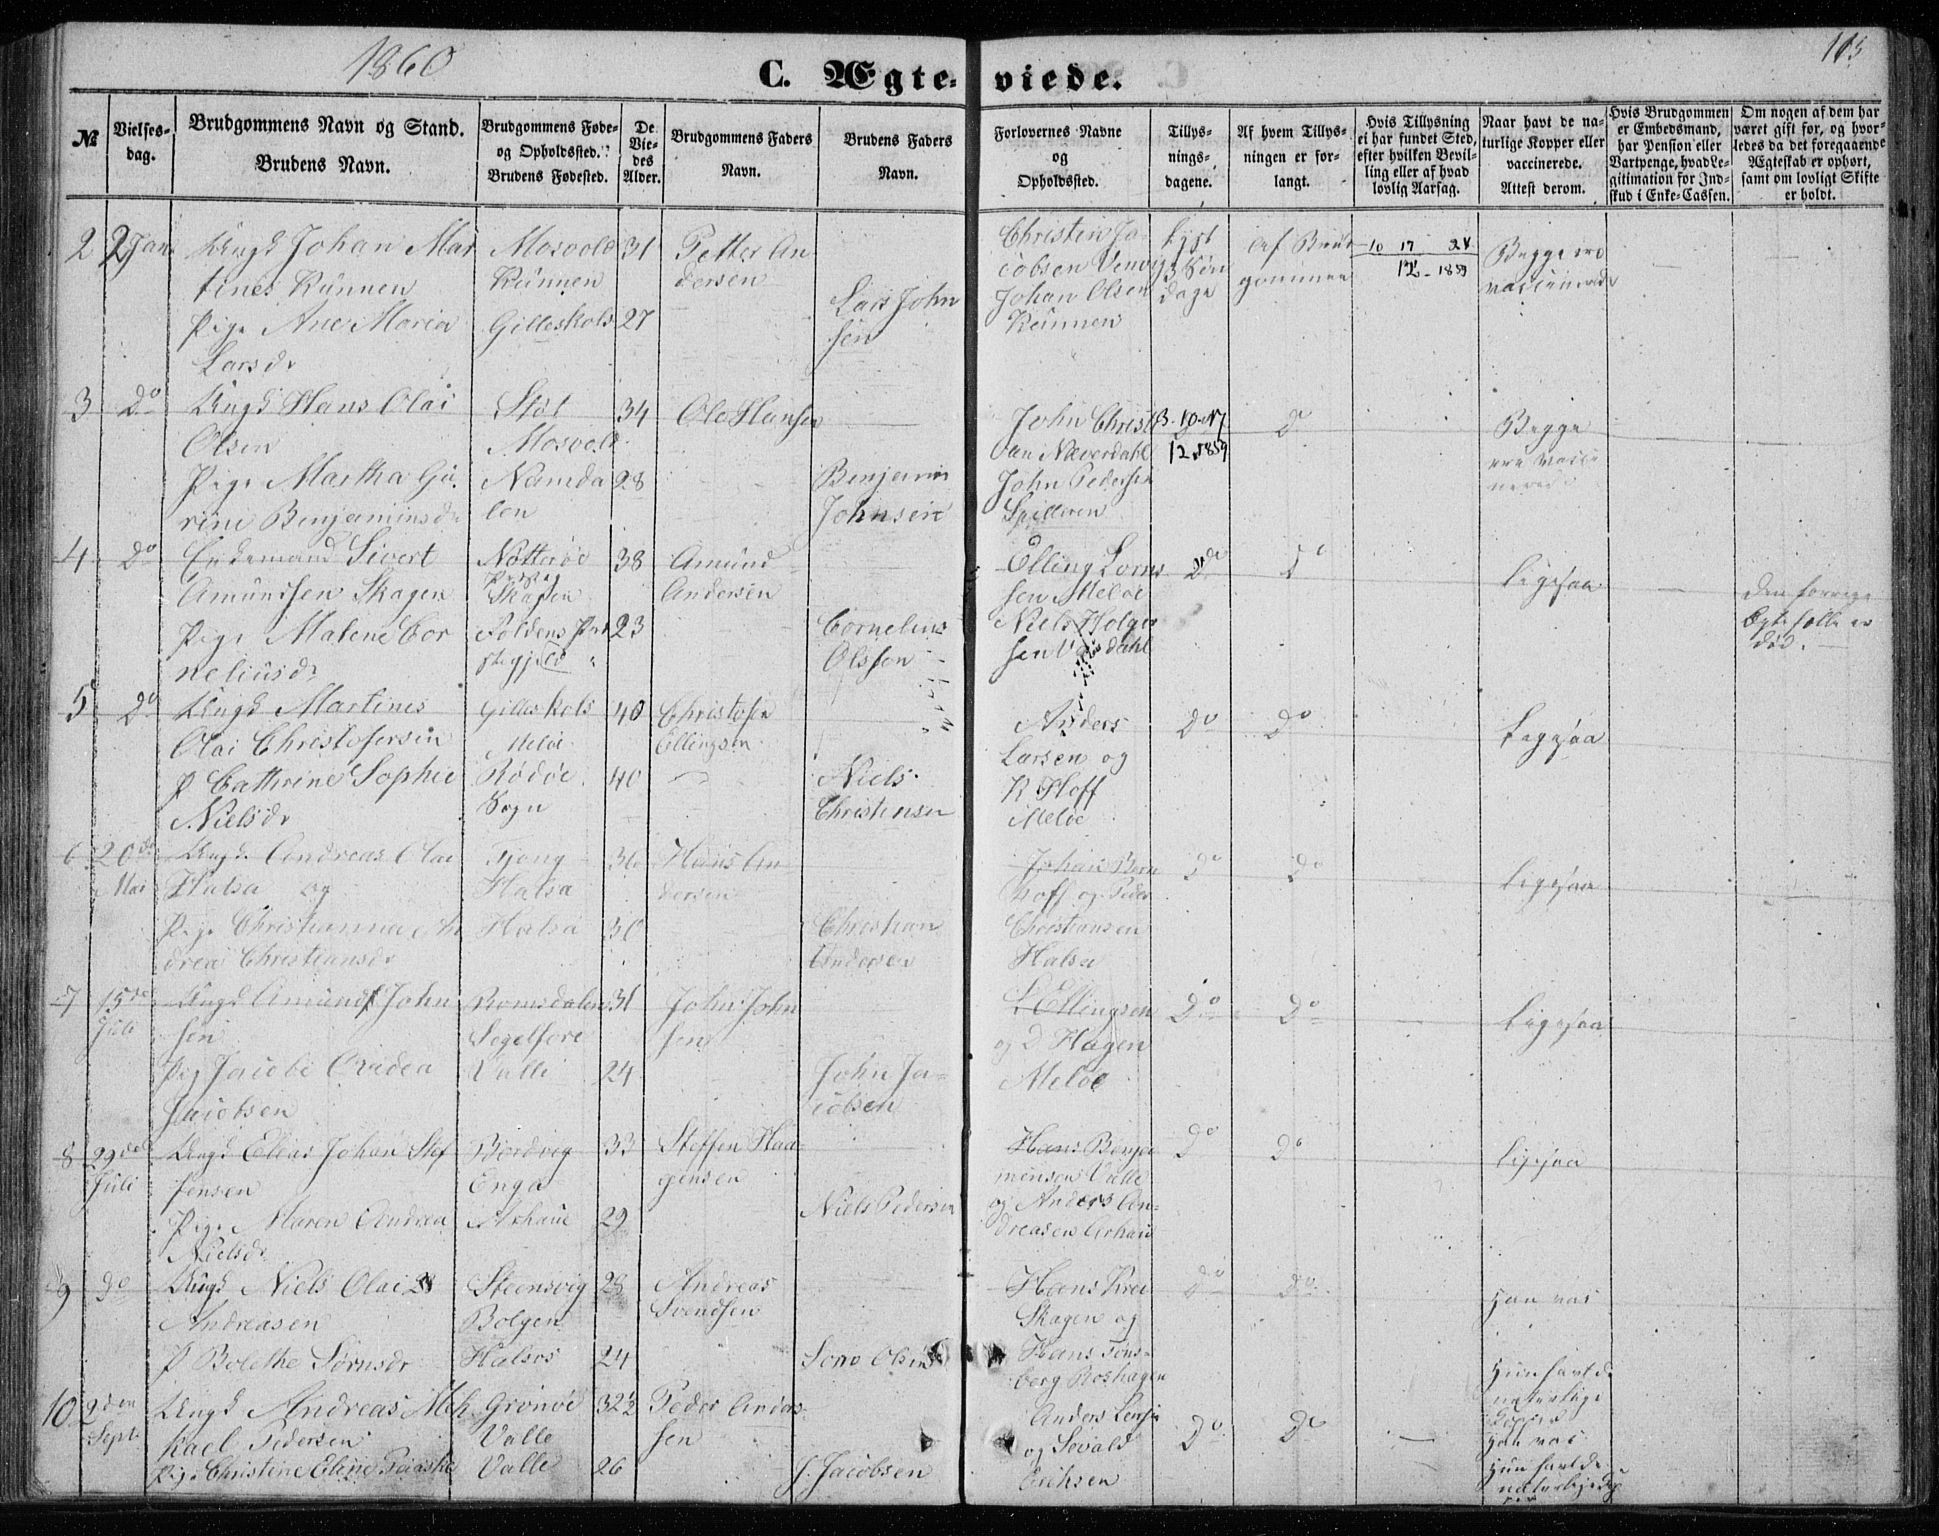 1860
C. Ægte-viede.
103
№
Vielses-dag.
Brudgommens Navn og Stand.
Brudens Navn.
Brudgommens Føde- og Opholdssted.
Brudens Fødested.
De Viedes Alder.
Brudgommens Faders Navn.
Brudens Faders Navn.
Forlovernes Navne og Opholdssted.
Tillysningsdagene.
Af hvem Tillysningen er forlangt.
Hvis Tillysning ei har fundet Sted, efter hvilken Bevilling eller af hvad lovlig Aarsag.
Naar havt de naturlige Kopper eller vaccinerede.
Attest derom.
Hvis Brudgommen er Embedsmand, har Pension eller Vartpenge, hvad Legitimation for Indskud i Enke-Cassen.
Om nogen af dem har været gift før, og hvorledes da det foregaaende Ægteskab er ophørt, samt om lovligt Skifte er holdt.
2 2 Jan Ungk Johan Mar
tines Kunnen
Pige Ane Maria
Larsdr
Mosvold
Kunnen
Gilleskols
31
27
Petter An
dersen
Lars John
sen
Christen Ja
cobsen
Johan Olsen
Kunnen
lyst
3 Søn
dage
Af Brud
gommen
10 17 24
12 - 1859
Begge ere
vaccinerede
3 Do Ungk Hans Olai
Olsen
Pige Martha
rine Benjaminsdr
Støt
Mosvold
Namda
len
34
28
Ole Hansen
Benjamin
Johnsen
John Christ
an Næverdahl
John Pedersen
Spilderen
12 1859
Do
Begge
ere vacci
nerede
4 Do Enkemand Sivert
Amundsen Skagen
Pige Malene Cor
neliusdr
Nøtterøe
Skagen
Foldens Præ
stegjeld
38
23
Amund
Andersen
Cornelius
Olsen
Elling Lorns
sen Meløe
Niels Holger
sen
Do
Do
Ligesaa
Den forrige
Ægtefælle er
død.
5 Do Ungk Martines
Olai Christofersen
P Cathrine Sophie
Nielsdr
Gilleskols
Meløe
Rødøe
Sogn
40
40
Christofer
Ellingsen
Niels
Christensen
Anders
Larsen og
R Hoff
Meløe
Do
Do
Ligesaa
6 20de
Mai
Ungk. Andreas Olai
Halsa og
Pige Christianna An
drea Christiansdr
Tjong
Halsa
Halsa
36
30
Hans An
dersen
Christian
Andersen
Johan Bern
hoff og Peder
Christiansen
Halsa
Do
Do
Ligesaa
7 15de
Juli
Ungk Amund John
sen
Pig Jacobe Ovidea
Jacobsen
Romsdalen
Segelfore
Valle
31
24
John John
sen
John Ja-
cobsen
L Ellingsen
og D Hagen
Meløe
Do
Do
Ligesaa
8 29de
Juli
Ungk Elias Johan Stef
fensen
Pige Maren Andrea
Nielsdr
Bordvig
Enga
Arhaug
33
29
Steffen Haa
gensen
Niels Pedersen
Hans Benja
minsen Valle
og Anders An-
dreasen Arhaug
Do
Do
Ligesaa
9 Do Ungk Niels Olai 28
Andreasen
P Bolethe Sørnsdr
Steensvig
Bolgen
Halsos
28
24
Andreas
Svendsen
Sørn Olsen
Hans
Skagen og
Hans Tøns-
berg Roshagen
Do
Do
Han vac
Hun havde
naturlige
Kopper
10 2den
Sept.
Ungk Andreas Mek
kael Pedersen
Pige Christine Eline
Grønøe
Valle
Valle
32½
26
Peder Anders
sen
J. Jacobsen
Anders Lensen
og Sevald
Eriksen
Do
Do
Han vac
Hun havde
naturlige